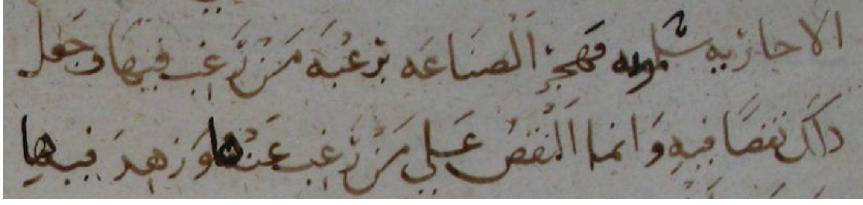 الا سلمويه فهجن الصناعه برغبة من رغب فيها وجعل
ذاك نقصًا فيه وَانما النقص على من رغب عنها وَزهدَ فيها